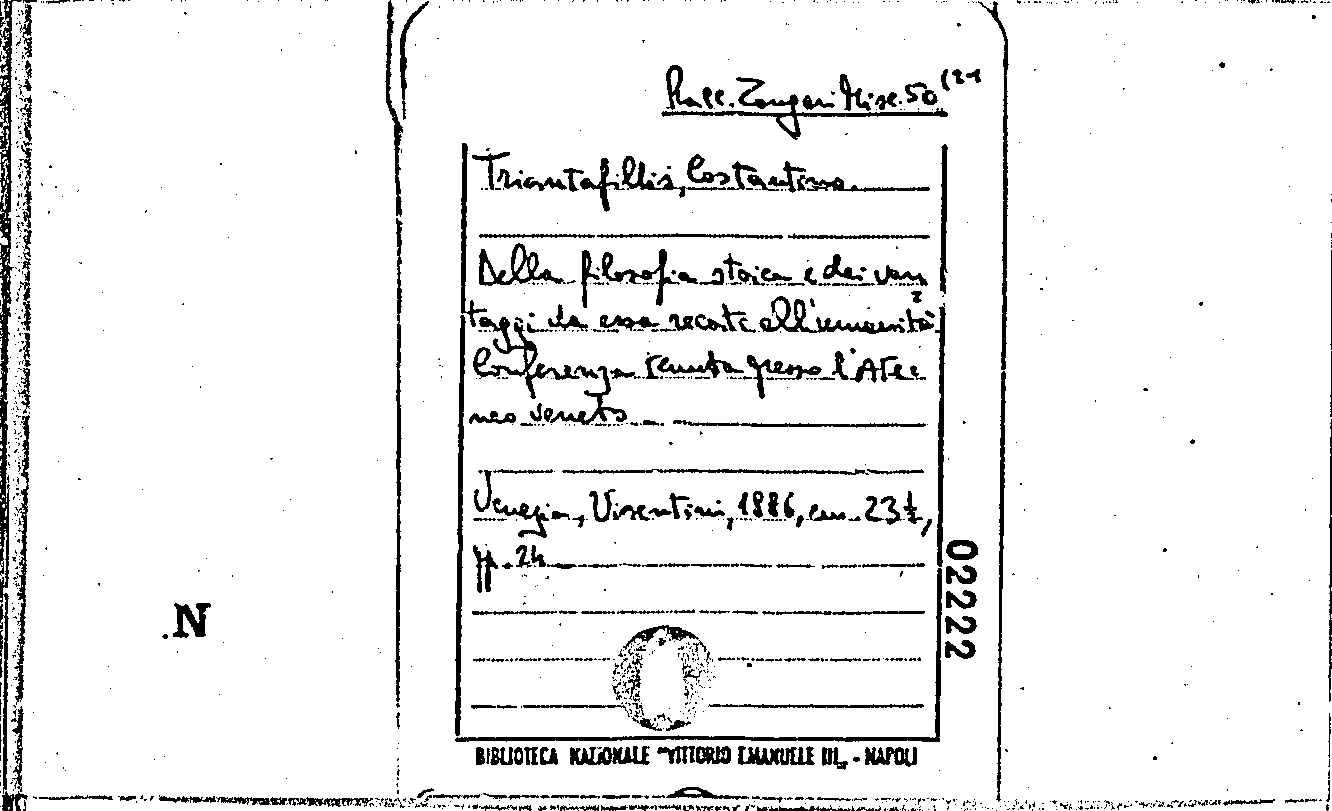 Racc. Zangari Misc. 50 (21
Triantafillis, Costantino
Della filosofia stoica e dei van
taggi da essa recati all'umanità
Conferenza tenuta presso l'Ate
neo veneto
Venezia, Visentini, 1886, cm. 23 ½,
pp. 24
02222
N
BIBLIOTECA NAZIONALE "VITTORIO EMANUELE III„ - NAPOLI